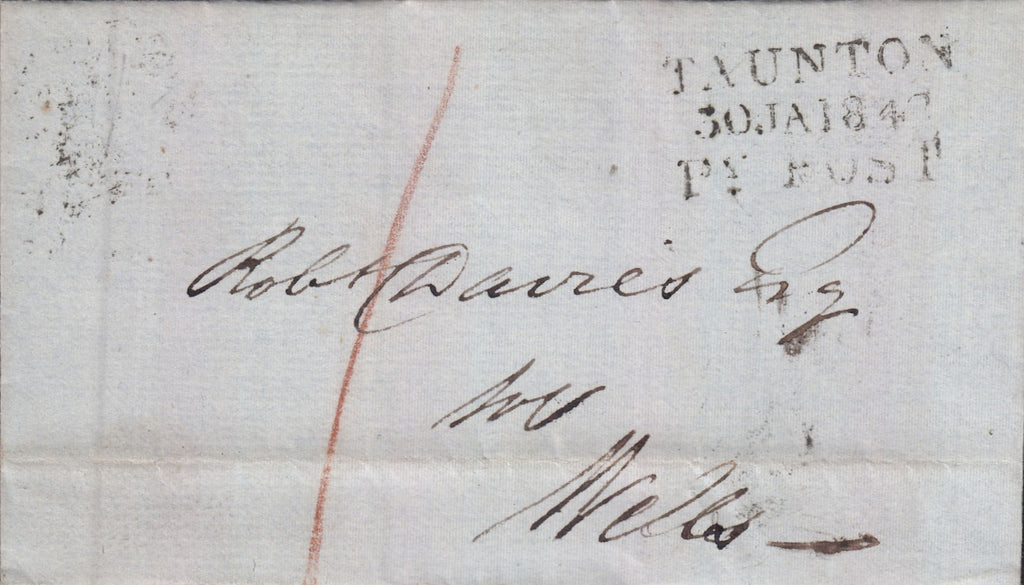 TAUNTON
30 JA 1840
PY POST
Robt Davies Esq
Wells